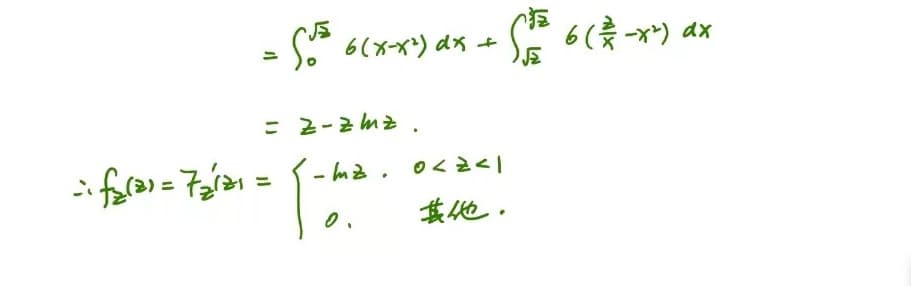 = ∫₀^√z 6(x-x²) dx + ∫_√z^∛z 6(z/x -x²) dx
= z - z ln z .
∴ f_Z(z) = F_Z'(z) = { -ln z . 0 < z < 1
0 . 其他 .